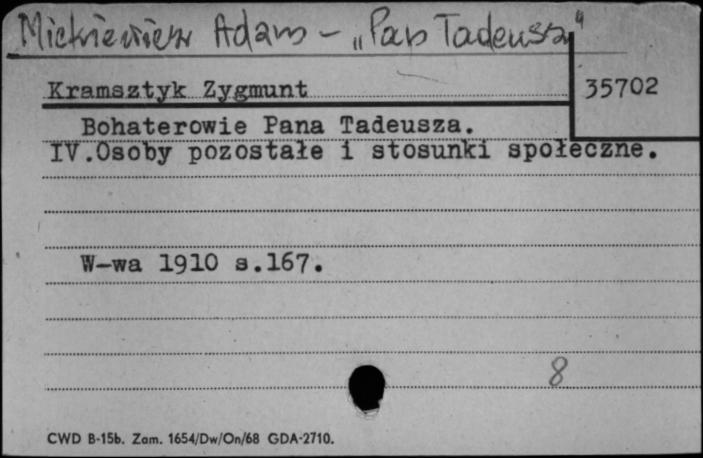 Mickiewicz Adam – „Pan Tadeusz"
Kramsztyk Zygmunt
35702
Bohaterowie Pana Tadeusza.
IV.Osoby pozostałe i stosunki społeczne.
W-wa 1910 s.167.
8
CWD B-15b. Zam. 1654/Dw/On/68 GDA-2710.